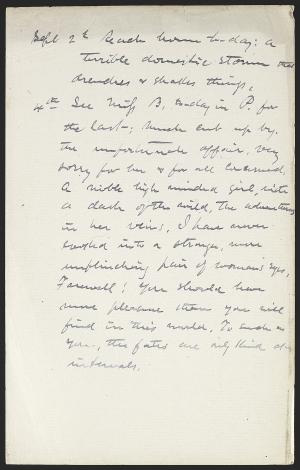 Sept 2d Reach home to-day: a
terrible domestic storm that
drenches & shakes things.
4th See Miss B. to-day in P. for
the last; much cut up by
the unfortunate affair. Very
sorry for her & for all concerned.
A noble high minded girl, with
a dash of the wild, the adventurous
in her veins; I have never
looked into a stronger, more
unflinching pair of woman's eyes.
Farewell! You should have
more pleasure than you will
find in this world. To such as
you, the fates are only kind at
intervals.